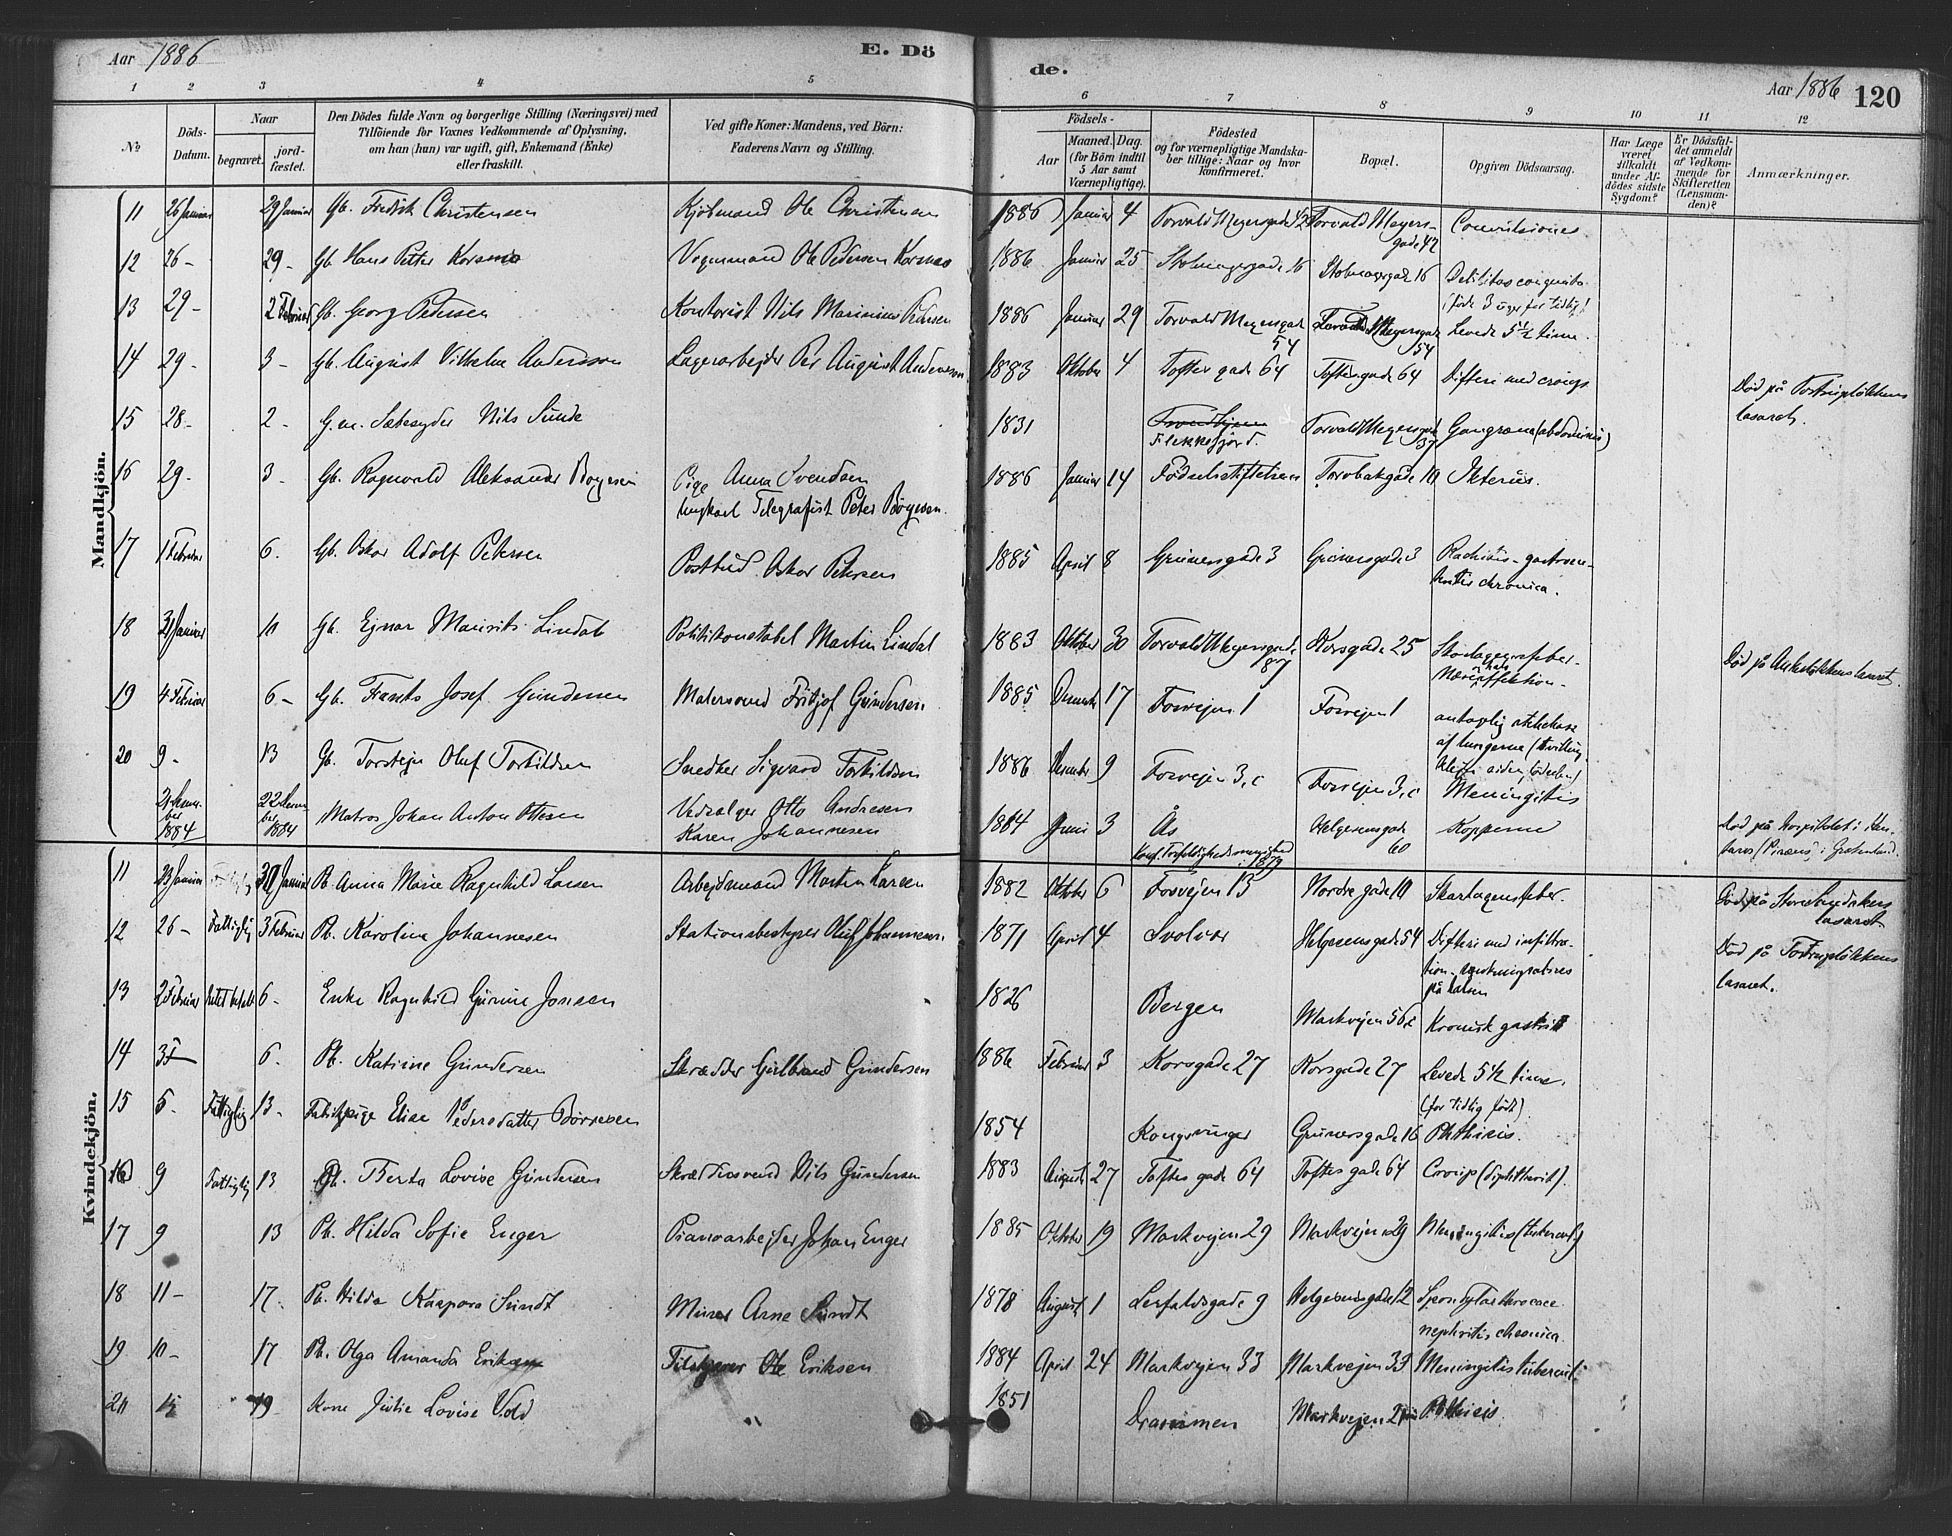 Aar 1886
E. Dö
de.
Aar 1886 120
1 2 3 4 5 6 7 8 9 10 11 12
No
Döds-Datum.
Naar
begravet.
jordfæstet.
Den Dödes fulde Navn og borgerlige Stilling (Næringsvei) med
Tilföiende for Voxnes Vedkommende af Oplysning,
om han (hun) var ugift, gift, Enkemand (Enke)
eller fraskilt.
Ved gifte Koner: Mandens, ved Börn:
Faderens Navn og Stilling.
Födsels-
Aar
Maaned. Dag.
(for Börn indtil
5 Aar samt
Værnepligtige).
Födested
og for værnepligtige Mandska-
ber tillige: Naar og hvor
konfirmeret.
Bopæl.
Opgiven Dödsaarsag.
Har Læge
været
tilkaldt
under Af-
dödes sidste
Sygdom?
Er Dödsfal-
det anmeldt
af Vedkom-
mende for
Skifteretten
(Lensman-
den)?
Anmærkninger.
Mandkjön.
11 26 Januar 29 Januar Gb. Fredrik Christensen Kjöbmand Ole Christensen 1886 Januar 4 Torvald Meyersgade 42 Torvald Meyers-
gade 42 Convulsiones
12 26 - 29 - Gb. Hans Petter Korsmo Vognmand Ole Pedersen Korsmo 1886 Januar 25 Stolmagergade 16 Stolmagergade 16 Debilitas congenita
(föde 3 uger for tidlig)
13 29 - 2 Februar Gb. Georg Pedersen Kontorist Nils Marinius Pedersen 1886 Januar 29 Torvald Meyersgade
54 Torvald Meyersgade
54 Levede 5 1/2 time.
14 29 - 3 - Gb. August Vilhelm Anderson Lagerarbejder Per August Anderson 1883 Oktober 4 Toftes gade 64 Toftesgade 64 Difteri med croup Död på Tostrupløkkens
lasaret.
15 28 - 2 - G.m. Sæbesyder Nils Sunde 1831 Trondhjem
Flekkefjord. Torvald Meyersgade
37 Gangræna (abdominis)
16 29 - 3 - Gb. Ragnvald Aleksander Börgesen Pige Anna Svendsen
Ungkarl Telegrafist Peter Börgesen. 1886 Januar 14 Födselsstiftelsen Torvbakgade 10 Ikterus.
17 1 Februar 6. Gb. Oskar Adolf Petersen Postbud Oskar Petersen 1885 April 8 Grünersgade 3 Grünersgade 3 Rachitis - gastroen-
teritis chronica.
18 31 Januar 10 Gb. Ejnar Maurits Lindal Politikonstabel Martin Lindal 1883 Oktober 30 Torvald Meyersgade
87 Korsgade 25 Skarlagensfeber -
Död på Ankerløkkens lasaret.
19 4 Februar 6 - Gb. Frants Josef Gundersen Malersvend Fritjof Gundersen 1885 December 17 Fossvejen 1 Fossvejen 1 antaglig atelektase
af lungerne (tvilling
20 9 - 13 Gb. Torstejn Oluf Torkildsen Snedker Sigvard Torkildsen 1886 9 Fossvejen 3, c Fossvejen 3, c Meningitis
1884 22
1884 Matros Johan Anton Ottesen Vedsælger Otto Andresen
Karen Johannesen 1864 Juni 3 Ås
Konf. Trefoldighedsmenighed
1879 Helgesensgade
60 Kopperne Död på hospitalet i
(Piræus) i Grækenland.
Kvindekjön.
11 23 Januar 30 Januar Pb. Anna Marie Ragnhild Larsen Arbejdsmand Martin Larsen 1882 Oktober 6 Fossvejen 13 Nordre gade 10 Skarlagensfeber. Död på Store
lasaret
12 26 - Fattiglig 3 Februar Pb. Karoline Johannesen Stationsbestyrer Oluf Johannesen 1871 April 4 Svolvær Helgesensgade 54 Difteri med infiltra-
tion
på halsen Död på Tostrupløkkens
lasaret.
13 2 Februar 6 - Enke Ragnhild Gurine Jonsen 1826 Bergen Markvejen 56 c Kronisk gastrit
14 3 F 6. Pb. Katrine Gundersen Skrædder Gulbrand Gundersen 1886 Februar 3 Korsgade 27 Korsgade 27 Levede 5 1/2 time.
(for tidlig født)
15 5. Fattiglig 13 - Fabrikpige Elise Pedersdatter Börresen 1854 Kongsvinger Grünersgade 16 Phthisis.
16 9 Fattiglig 13 Pb. Berta Lovise Gundersen Skræddersvend Nils Gundersen 1883 August 27 Toftes gade 64 Toftes gade 64 Croup (diphtherit).
17 9 13 Pb. Hilda Sofie Enger Pianoarbejder Johan Enger 1885 Oktober 19 Markvejen 29 Markvejen 29 Meningitis (tubercul.)
18 11 - 17. Pb. Hilda Kaspara Sundt Murer Arne Sundt 1878 August 1 Lerfaldsgade 9 Helgesensgade 12 Spondylarthrocace
nephritis chronica.
19 10 - 17 Pb. Olga Amanda Eriksen Ole Eriksen 1884 April 24 Markvejen 33 Markvejen 33 Meningitis tubercul.
20 15 19 Kone Julie Lovise Vold 1851 Drammen Markvejen Phthisis.